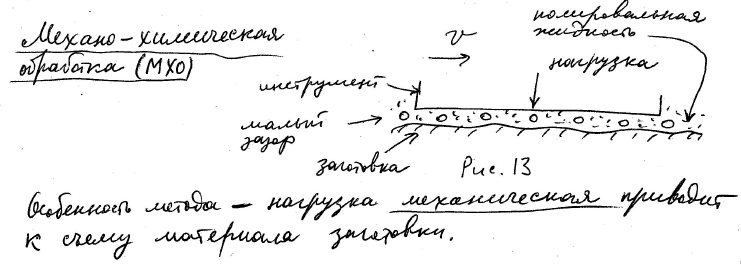 Механо-химическая
обработка (МХО)
v
полировальная
жидкость
нагрузка
инструмент
малый
зазор
заготовка
Рис. 13
Особенность метода – нагрузка механическая приводит
к съему материала заготовки.